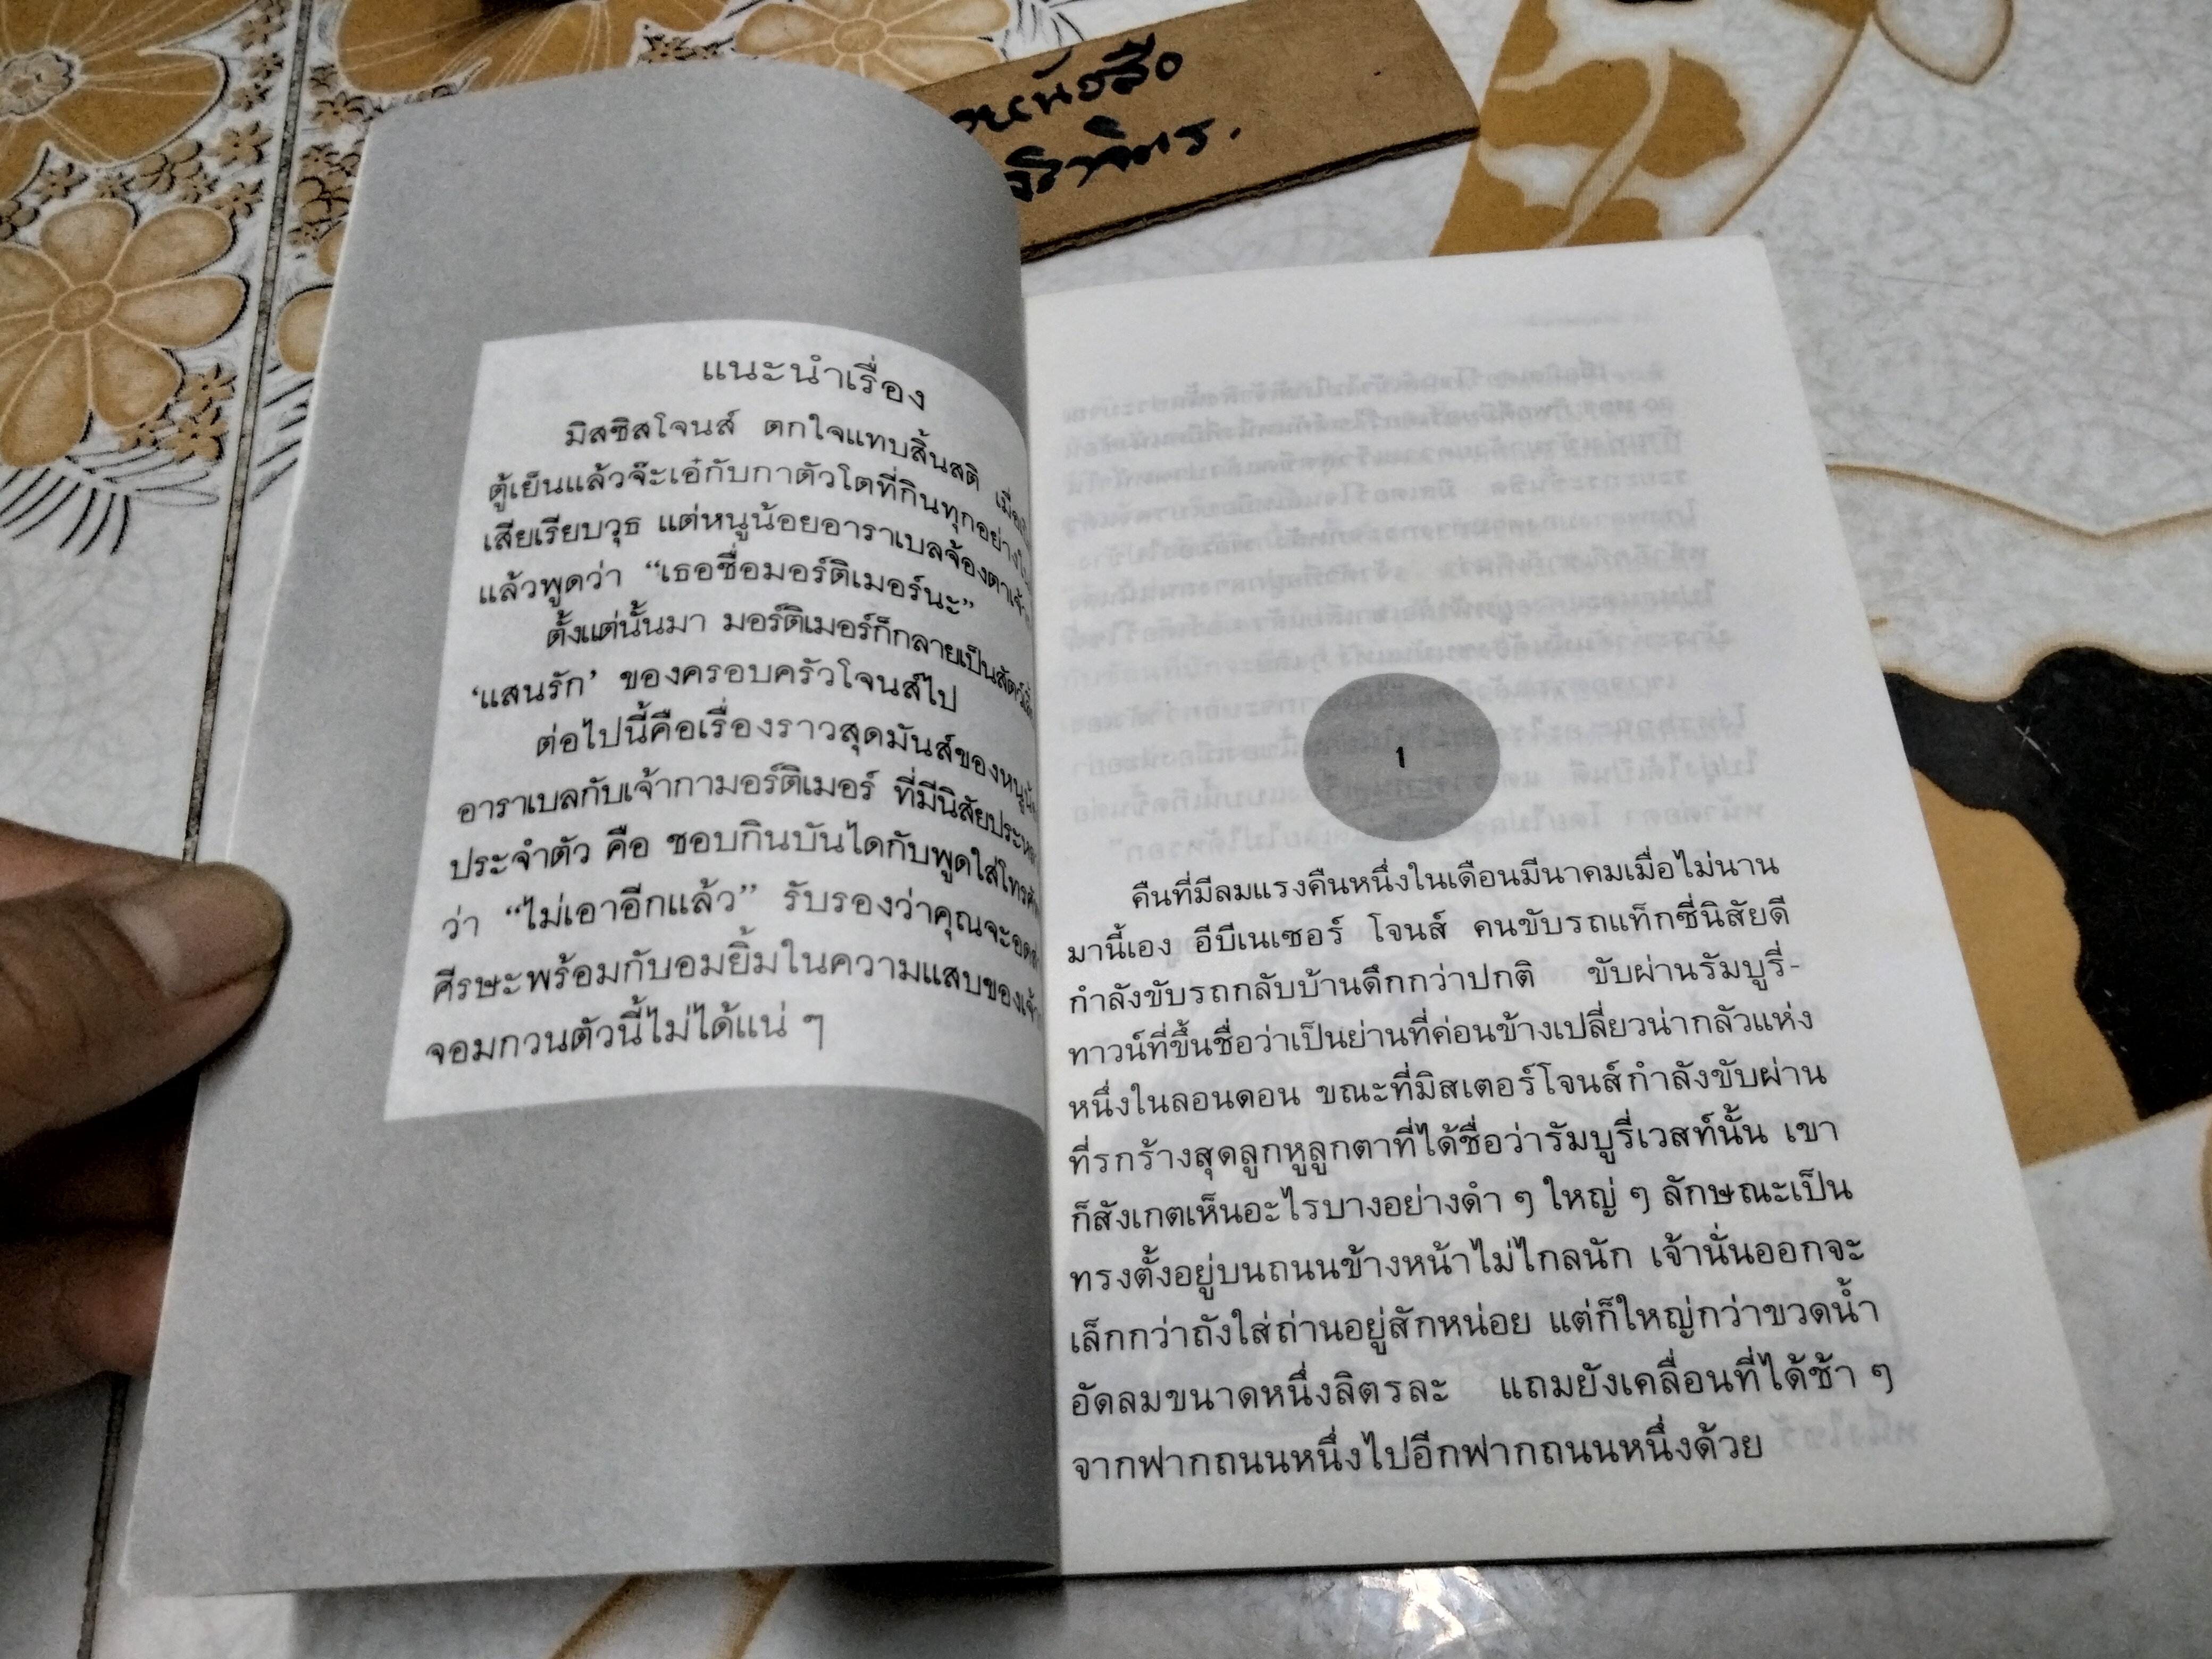 หนังสือ
แนะนำเรื่อง
มิสซิสโจนส์ ตกใจแทบสิ้นสติ
ตู้เย็นแล้วจ๊ะเอ๋กับกาตัวโตที่กินทุกอย่าง
เสียเรียบวุธ แต่หนูน้อยอาราเบลจ้องตา
แล้วพูดว่า “เธอชื่อมอร์ติเมอร์นะ”
ตั้งแต่นั้นมา มอร์ติเมอร์ก็กลายเป็นสัตว์
‘แสนรัก’ ของครอบครัวโจนส์ไป
ต่อไปนี้คือเรื่องราวสุดมันส์ของหนู
อาราเบลกับเจ้ากามอร์ติเมอร์ ที่มีนิสัย
ประจำตัว คือ ชอบกินบันไดกับพูดใส่
ว่า “ไม่เอาอีกแล้ว” รับรองว่าคุณจะ
ศีรษะพร้อมกับอมยิ้มในความแสบของ
จอมกวนตัวนี้ไม่ได้แน่ ๆ
1
คืนที่มีลมแรงคืนหนึ่งในเดือนมีนาคมเมื่อไม่นาน
มานี้เอง อีบีเนเซอร์ โจนส์ คนขับรถแท็กซี่นิสัยดี
กำลังขับรถกลับบ้านดึกกว่าปกติ ขับผ่านรัมบูรี่-
ทาวน์ที่ขึ้นชื่อว่าเป็นย่านที่ค่อนข้างเปลี่ยวน่ากลัวแห่ง
หนึ่งในลอนดอน ขณะที่มิสเตอร์โจนส์กำลังขับผ่าน
ที่รกร้างสุดลูกหูลูกตาที่ได้ชื่อว่ารัมบูรี่เวสท์นั้น เขา
ก็สังเกตเห็นอะไรบางอย่างดำ ๆ ใหญ่ ๆ ลักษณะเป็น
ทรงตั้งอยู่บนถนนข้างหน้าไม่ไกลนัก เจ้านั่นออกจะ
เล็กกว่าถังใส่ถ่านอยู่สักหน่อย แต่ก็ใหญ่กว่าขวดน้ำ
อัดลมขนาดหนึ่งลิตรละ แถมยังเคลื่อนที่ได้ช้า ๆ
จากฟากถนนหนึ่งไปอีกฟากถนนหนึ่งด้วย